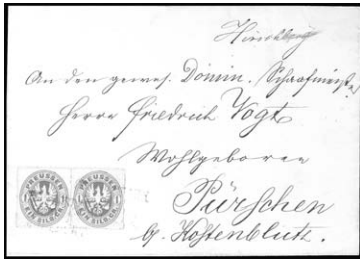 Hirschberg
An den gewes. Domin. Schaafmeister
Herrn Friedrich Vogt
Wohlgeboren
Pürschen
b. Kostenblut.
PREUSSEN PREUSSEN
EIN SILB.GR. EIN SILB.GR.